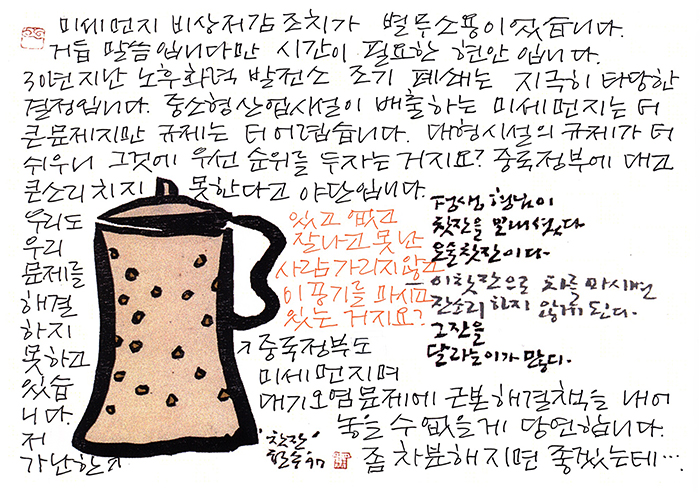 미세먼지 비상저감 조치가 별무소용이었습니다.
거듭 말씀입니다만 시간이 필요한 현안입니다.
30년 지난 노후화력 발전소 조기 폐쇄는 지극히 타당한
결정입니다. 중소형 산업시설이 배출하는 미세먼지는 더
큰 문제지만 규제는 더 어렵습니다. 대형시설의 규제가 더
쉬우니 그것에 우선 순위를 두자는 거지요? 중국정부에 대고
큰소리치지 못한다고 야단입니다.
우리도
우리
문제를
해결
하지
못하고
있습
니다.
저
가난한↗
있고 없고
잘나고 못난
사람 가리지 않고
이 공기를 마시고
있는 거지요?
평생, 형님이
찻잔을 보내셨다
오늘 찻잔이다.
이 찻잔으로 차를 마시면
잔소리하지 않게 된다.
그 잔을
달라는 이가 많다.
↗중국정부도
미세먼지며
대기오염문제에 근본 해결책을 내어
놓을 수 없을 게 당연합니다.
좀 차분해지면 좋겠는데….
"찻잔"
철수 97